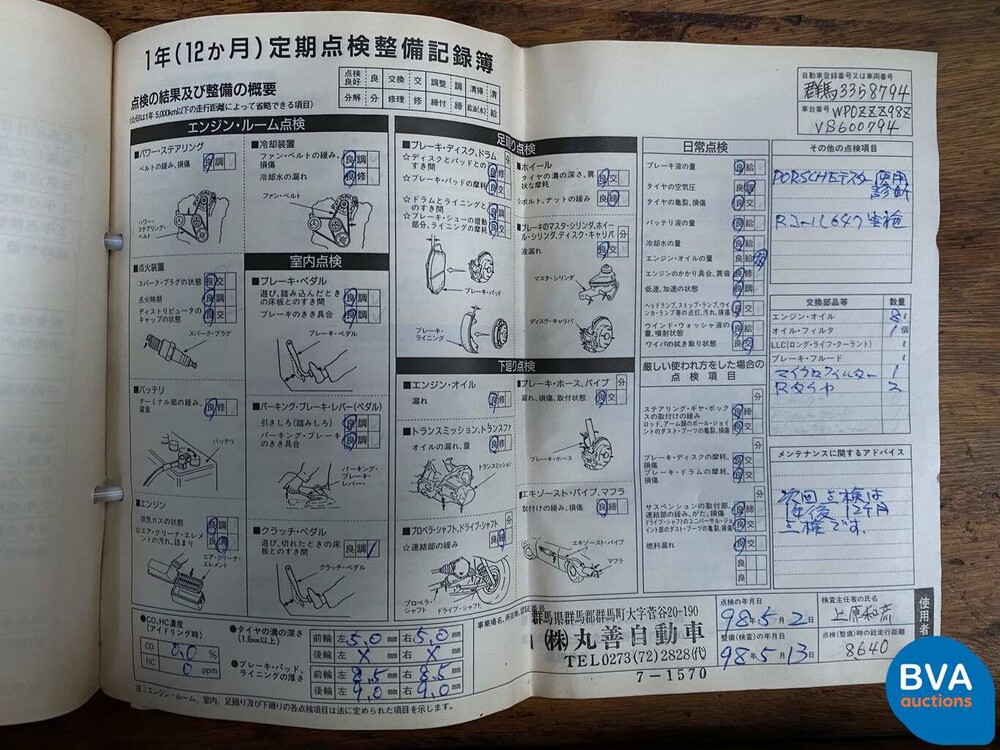 1年(12か月)定期点検整備記録簿
点検の結果及び整備の概要
(☆印は1年 5,000km以下の走行距離によって省略できる項目)
点検良好 良 交換 交 調整 調 清掃 清
分解 分 修理 修 締付 締 給油(水) 給
自動車登録番号又は車両番号
群馬3358794
車台番号 WP0ZZZ98Z
VS600794
エンジン・ルーム点検
■パワー・ステアリング
ベルトの緩み、損傷 良 調
パワー・ステアリング・ベルト
■冷却装置
ファン・ベルトの緩み、損傷 良 調
冷却水の漏れ 良 修
ファン・ベルト
■点火装置
スパーク・プラグの状態 良 交
点火時期 良 調
ディストリビュータのキャップの状態 良 交
スパーク・プラグ
■バッテリ
ターミナル部の緩み、腐食 良 修
バッテリ
■エンジン
排気ガスの状態 良 調
☆エア・クリーナ・エレメントの汚れ、詰まり 良 清
エア・クリーナ・エレメント
室内点検
■ブレーキ・ペダル
遊び、踏み込んだときの床板とのすき間 良 調
ブレーキのきき具合 良 調
ブレーキ・ペダル
■パーキング・ブレーキ・レバー(ペダル)
引きしろ(踏みしろ) 良 調
パーキング・ブレーキのきき具合 良 調
パーキング・ブレーキ・レバー
■クラッチ・ペダル
遊び、切れたときの床板とのすき間 良 調
クラッチ・ペダル
足廻り点検
■ブレーキ・ディスク、ドラム 分
☆ディスクとパッドとのすき間 良 修
☆ブレーキ・パッドの摩耗 良 交
☆ドラムとライニングとのすき間 良 調
☆ブレーキ・シューの摺動部分、ライニングの摩耗 良 交
ブレーキ・パッド
ブレーキ・ライニング
■ホイール
タイヤの溝の深さ、異状な摩耗 良 交
☆ボルト、ナットの緩み 良 締
■ブレーキのマスタ・シリンダ、ホイール・シリンダ、ディスク・キャリパ 分
液漏れ 良 交
マスタ・シリンダ
ディスク・キャリパ
下廻り点検
■エンジン・オイル
漏れ 良 修
■トランスミッション、トランスファ
オイルの漏れ、量 良 修
トランスミッション
■プロペラ・シャフト、ドライブ・シャフト 分
☆連結部の緩み 良 締
プロペラ・シャフト
ドライブ・シャフト
■ブレーキ・ホース、パイプ 分
漏れ、損傷、取付状態 良 交
ブレーキ・ホース
■エキゾースト・パイプ、マフラ
取付けの緩み、損傷 良 締
エキゾースト・パイプ
マフラ
日常点検
ブレーキ液の量 良 給
タイヤの空気圧 良 調
タイヤの亀裂、損傷 良 交
バッテリ液の量 良 給
冷却水の量 良 給
エンジン・オイルの量 良 給
エンジンのかかり具合、異音 良 修
低速、加速の状態 良 調
ヘッドランプ、ストップ・ランプ、ウインカ・ランプ等の点灯、汚れ、損傷 良 修
ウインド・ウォッシャ液の量、噴射状態 良 給
ワイパの拭き取り状態 良 交
厳しい使われ方をした場合の点検項目
分
ステアリング・ギヤ・ボックスの取付けの緩み 良 締
ロッド、アーム類のボール・ジョイントのダスト・ブーツの亀裂、損傷 良 交
分
ブレーキ・ディスクの摩耗、損傷 良 交
ブレーキ・ドラムの摩耗、損傷 良 交
分
サスペンションの取付部、連結部の緩み、がた、損傷 良 締
ドライブ・シャフトのユニバーサル・ジョイント部のダスト・ブーツの亀裂、損傷 良 交
燃料漏れ 良 修
良
良
その他の点検項目
PORSCHEテスター使用
診断
交換部品等 数量
エンジン・オイル 8 ℓ
オイル・フィルタ 1 個
LLC(ロング・ライフ・クーラント) ℓ
ブレーキ・フルード ℓ
マイクロフィルター 1
Rタイヤ 2
メンテナンスに関するアドバイス
次回点検は
12ヶ月
点検です。
●CO、HC濃度(アイドリング時)
CO 0.0 %
HC 0 ppm
●タイヤの溝の深さ(1.6mm以上)
前輪 左 5.0 mm 右 5.0 mm
後輪 左 X mm 右 X mm
●ブレーキ・パッド、ライニングの厚さ
前輪 左 8.5 mm 右 8.5 mm
後輪 左 9.0 mm 右 9.0 mm
群馬県群馬郡群馬町大字菅谷20-190
(株)丸善自動車
TEL0273(72)2828(代)
7-1570
点検の年月日
98年5月2日
整備(検査)の年月日
98年5月13日
検査主任者の氏名
上原和彦
点検(整備)時の総走行距離
8640
使用者
注:エンジン・ルーム、室内、足廻り及び下廻りの各点検項目は法に定められた項目を示します。
BVA
auctions